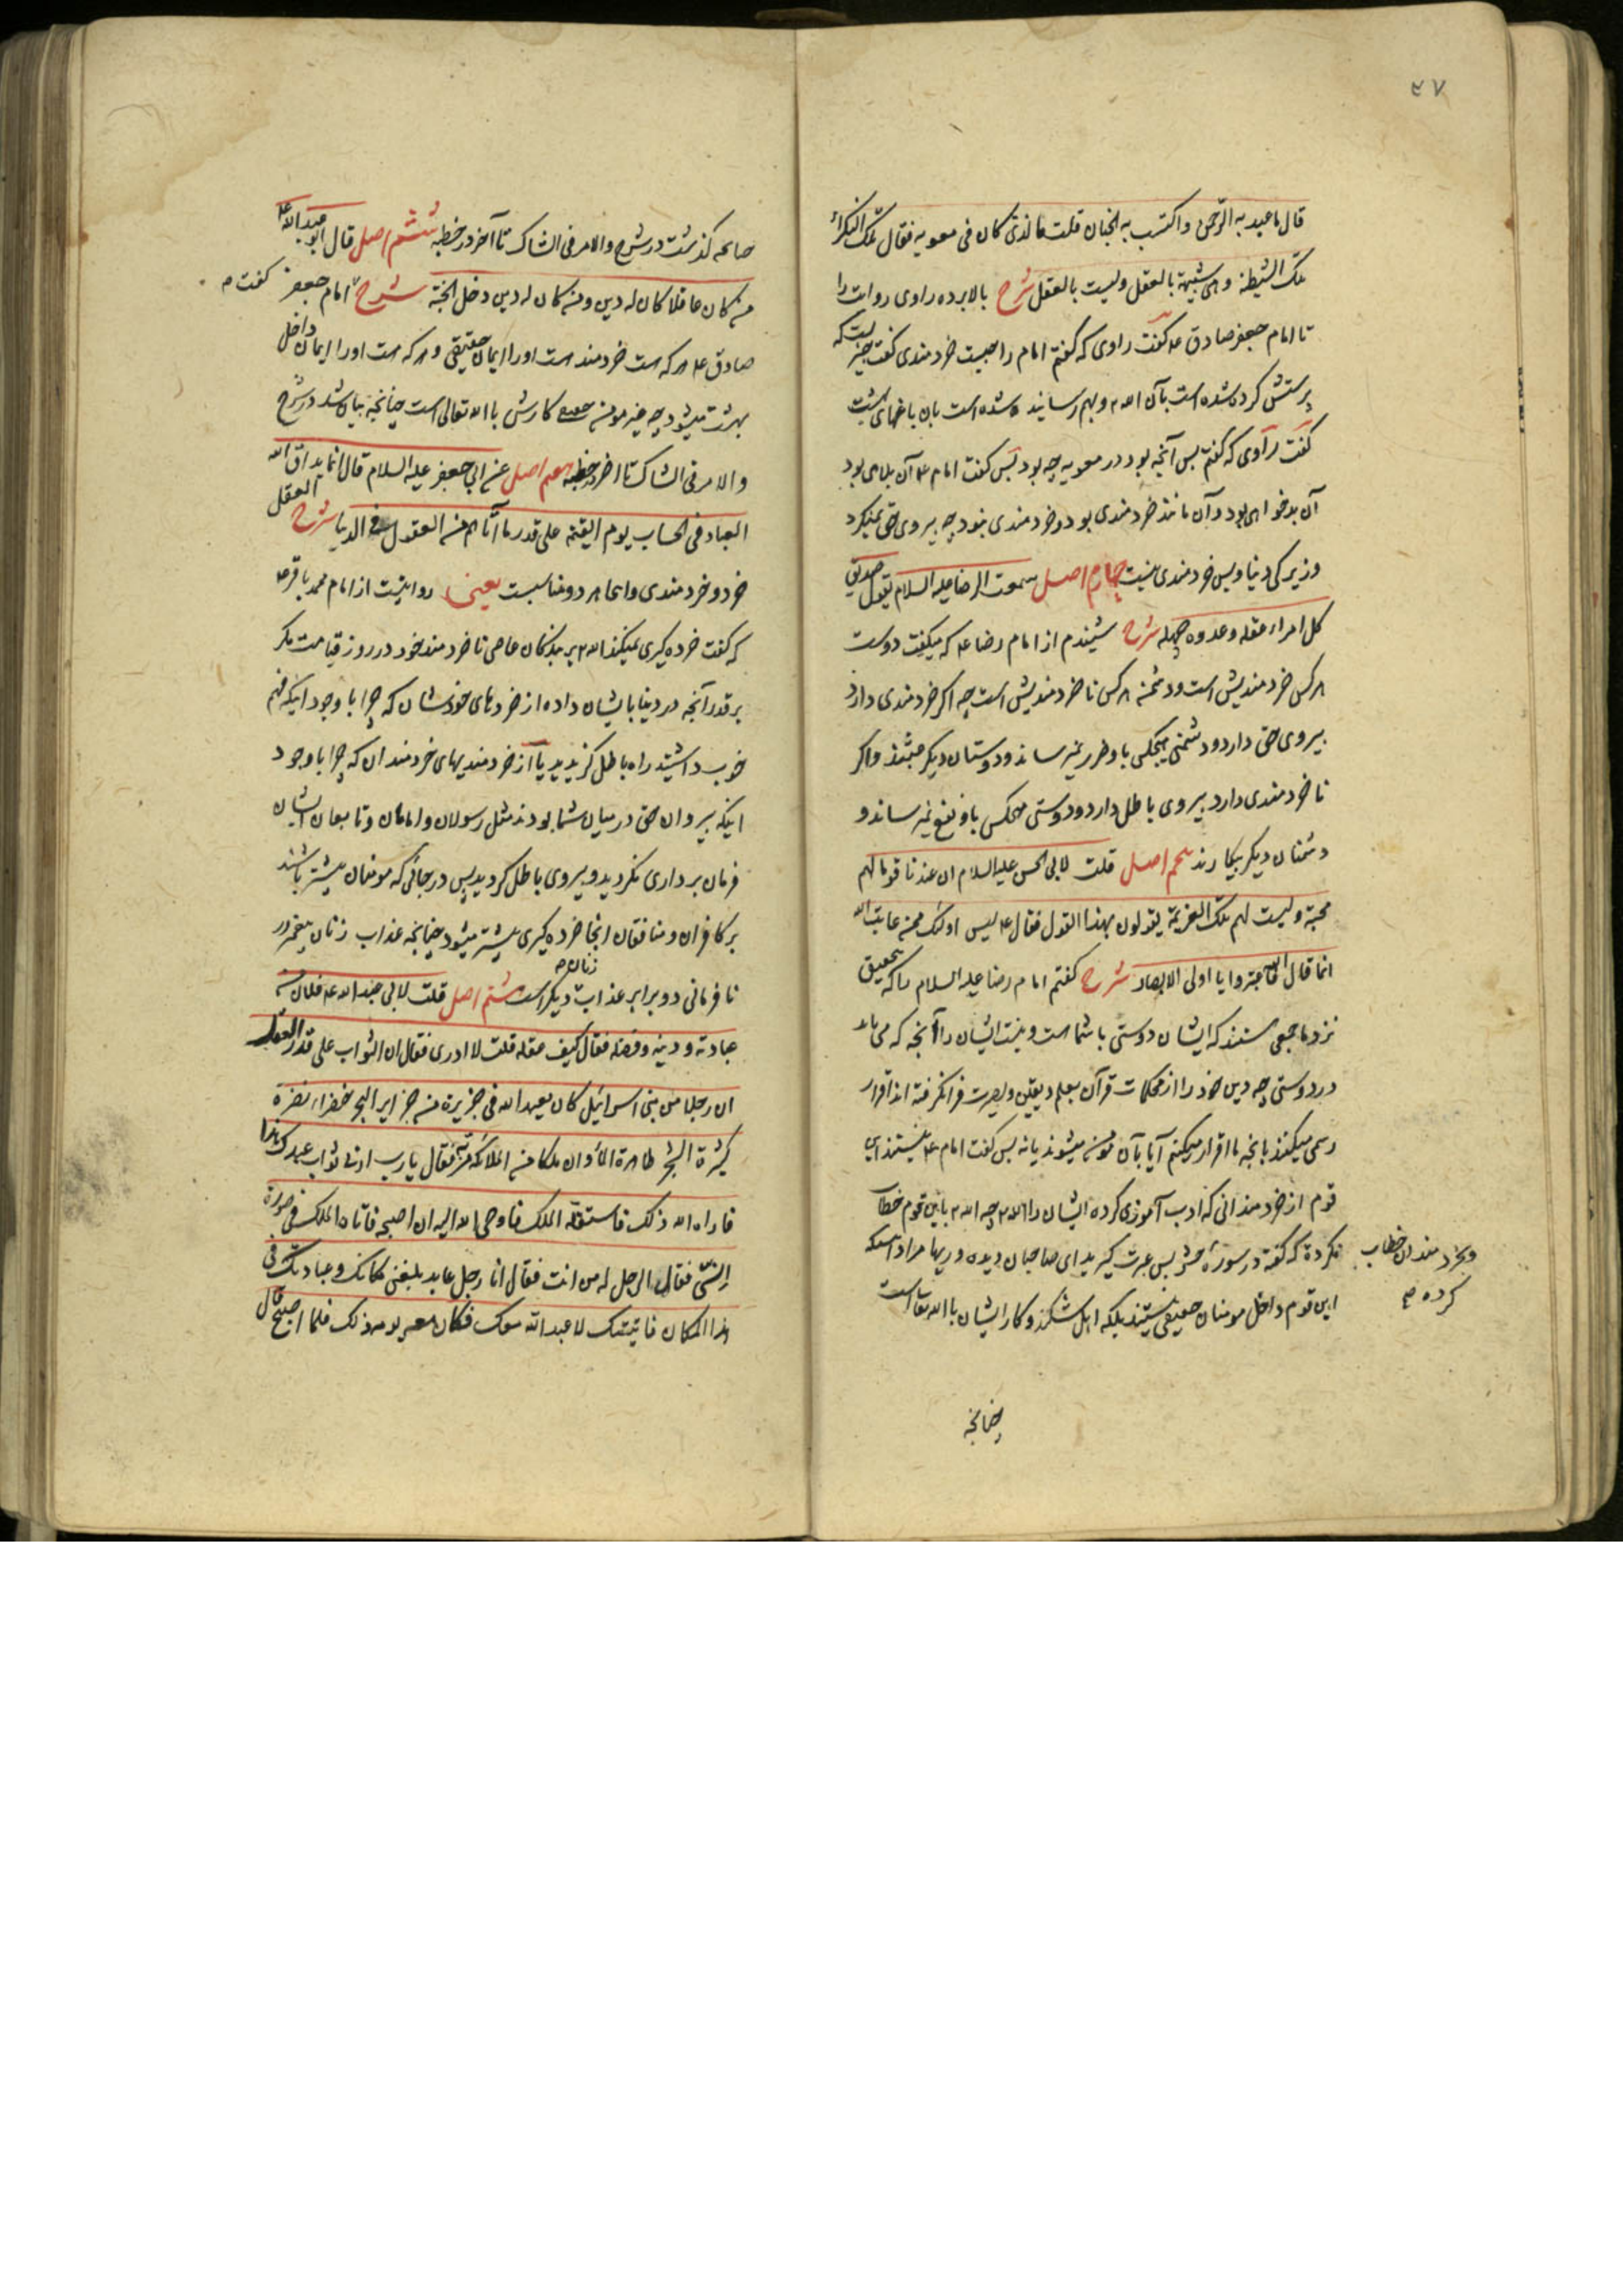 ٣٧
قال ما عبد به الرحمن واکتسب به الجنان قلت فالذی کان فی معویه فقال تلک النکراء
تلک الشیطنة وهی شبیهة بالعقل ولیست بالعقل شرح بالا برده راوی روایت را
تا امام جعفر صادق ع گفت راوی که گفتم امام را چیست خردمندی گفت چیزیست که
پرستش کرده شده است بآن الله و بهم رسانیده شده است بان باغهای بهشت
گفت راوی که گفتم پس آنچه بود در معویه چه بود پس گفت امام ع آن بلای بود
آن بدخواهی بود و آن مانند خردمندی بود و خردمندی نبود چه پیروی حق نمیکرد
و زیرکی دنیا و بس خردمندی نیست چهارم اصل سمعت الرضا علیه السلام یقول صدیق
کل امرء عقله وعدوه جهله شرح شنیدم از امام رضا ع که میگفت دوست
هر کس خردمندیش است و دشمن هر کس ناخردمندیش است چه اگر خردمندی دارد
پیروی حق دارد و دشمنی هیچکس باو ضرر نمیرساند و دوستان دیگر عبثند و اگر
ناخردمندی دارد پیروی باطل دارد و دوستی هیچکس باو نفع نمیرساند و
دشمنان دیگر بیکارند پنجم اصل قلت لابی الحسن علیه السلام ان عندنا قوما لهم
محبة ولیست لهم تلک العزیمة یقولون بهذا القول فقال ع لیس اولئک ممن عاتب الله
انما قال الله فاعتبروا یا اولی الابصار شرح گفتم امام رضا علیه السلام را که بتحقیق
نزد ما جمعی هستند که ایشان دوستی با شما هست و نیست ایشان را آنچه که می باید
در دوستی چه دین خود را از محکمات قرآن بعلم و یقین و بصیرت فرا نگرفته اند اقرار
رسمی میکنند بانچه ما اقرار میکنیم آیا بآن مومن میشوند یا نه پس گفت امام ع نیستند این
قوم از خردمندانی که ادب آموزی کرده ایشان را الله چه الله باین قوم خطاب
نکرده که گفته در سوره حشر پس عبرت گیرید ای صاحبان دیده وریها مراد اینست که
این قوم داخل مومنان حقیقی نیستند بلکه اهل شکند و کار ایشان با الله تعالی است
و بخردمندان خطاب
کرده
چنانچه
صاعه گذشت در شرح والامر فی الشاک تا آخر در خطبه ششم اصل قال ابو عبد الله ع
من کان عاقلا کان له دین ومن کان له دین دخل الجنة شرح امام جعفر گفت
صادق ع هر که هست خردمند هست او را ایمان حقیقی و هر که هست او را ایمان داخل
بهشت میشود چه غیر مومن حقیقی کارش با الله تعالی است چنانچه بیان شد در شرح
والامر فی الشاک تا آخر در خطبه هفتم اصل عن ابی جعفر علیه السلام قال انما یداق الله
العباد فی الحساب یوم القیمة علی قدر ما آتاهم من العقول فی الدنیا شرح العقل
خرد و خردمندی و اینجا هر دو مناسبست یعنی روایتیست از امام محمد باقر ع
که گفت خرده گیری نمیکند الله بر بندگان عاصی ناخردمند خود در روز قیامت مگر
بر قدر آنچه در دنیا بایشان داده از خردهای خودشان که چرا با وجود اینکه فهم
خوب داشتید راه باطل گزیدید یا از خردمندیهای خردمندان که چرا با وجود
اینکه پیروان حق در میان شما بودند مثل رسولان و امامان و تابعان ایشان
فرمان برداری نکردید و پیروی باطل کردید پس در جائی که مومنان بیشتر باشند
بر کافران و منافقان آنجا خرده گیری بیشتر میشود چنانچه عذاب زنان پیغمبر در
نافرمانی دو برابر عذاب زنان دیگر است هشتم اصل قلت لابی عبد الله ع فلان من
عبادته ودینه وفضله فقال کیف عقله قلت لا ادری فقال ان الثواب علی قدر العقل
ان رجلا من بنی اسرائیل کان یعبد الله فی جزیرة من جزایر البحر خضراء نضرة
کثیرة الشجر طاهرة الماء وان ملکا من الملائکة مر به فقال یا رب ارنی ثواب عبدک هذا
فاراه الله ذلک فاستقله الملک فاوحی الله الیه ان اصحبه فاتاه الملک فی صورة
انسی فقال الرجل له من انت فقال انا رجل عابد بلغنی مکانک وعبادتک فی
هذا المکان فاتیتک لاعبد الله معک فکان معه یومه ذلک فلما اصبح قال